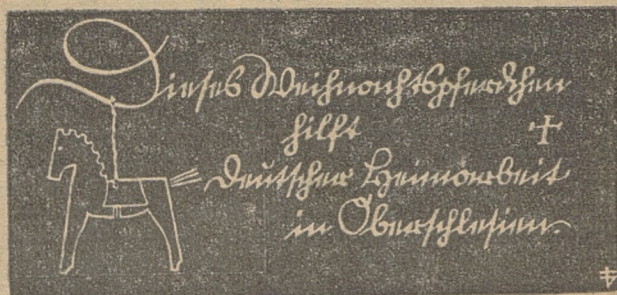 Dieses Weihnachtspferdchen
hilft +
Deutscher Heimarbeit
in Oberschlesien.